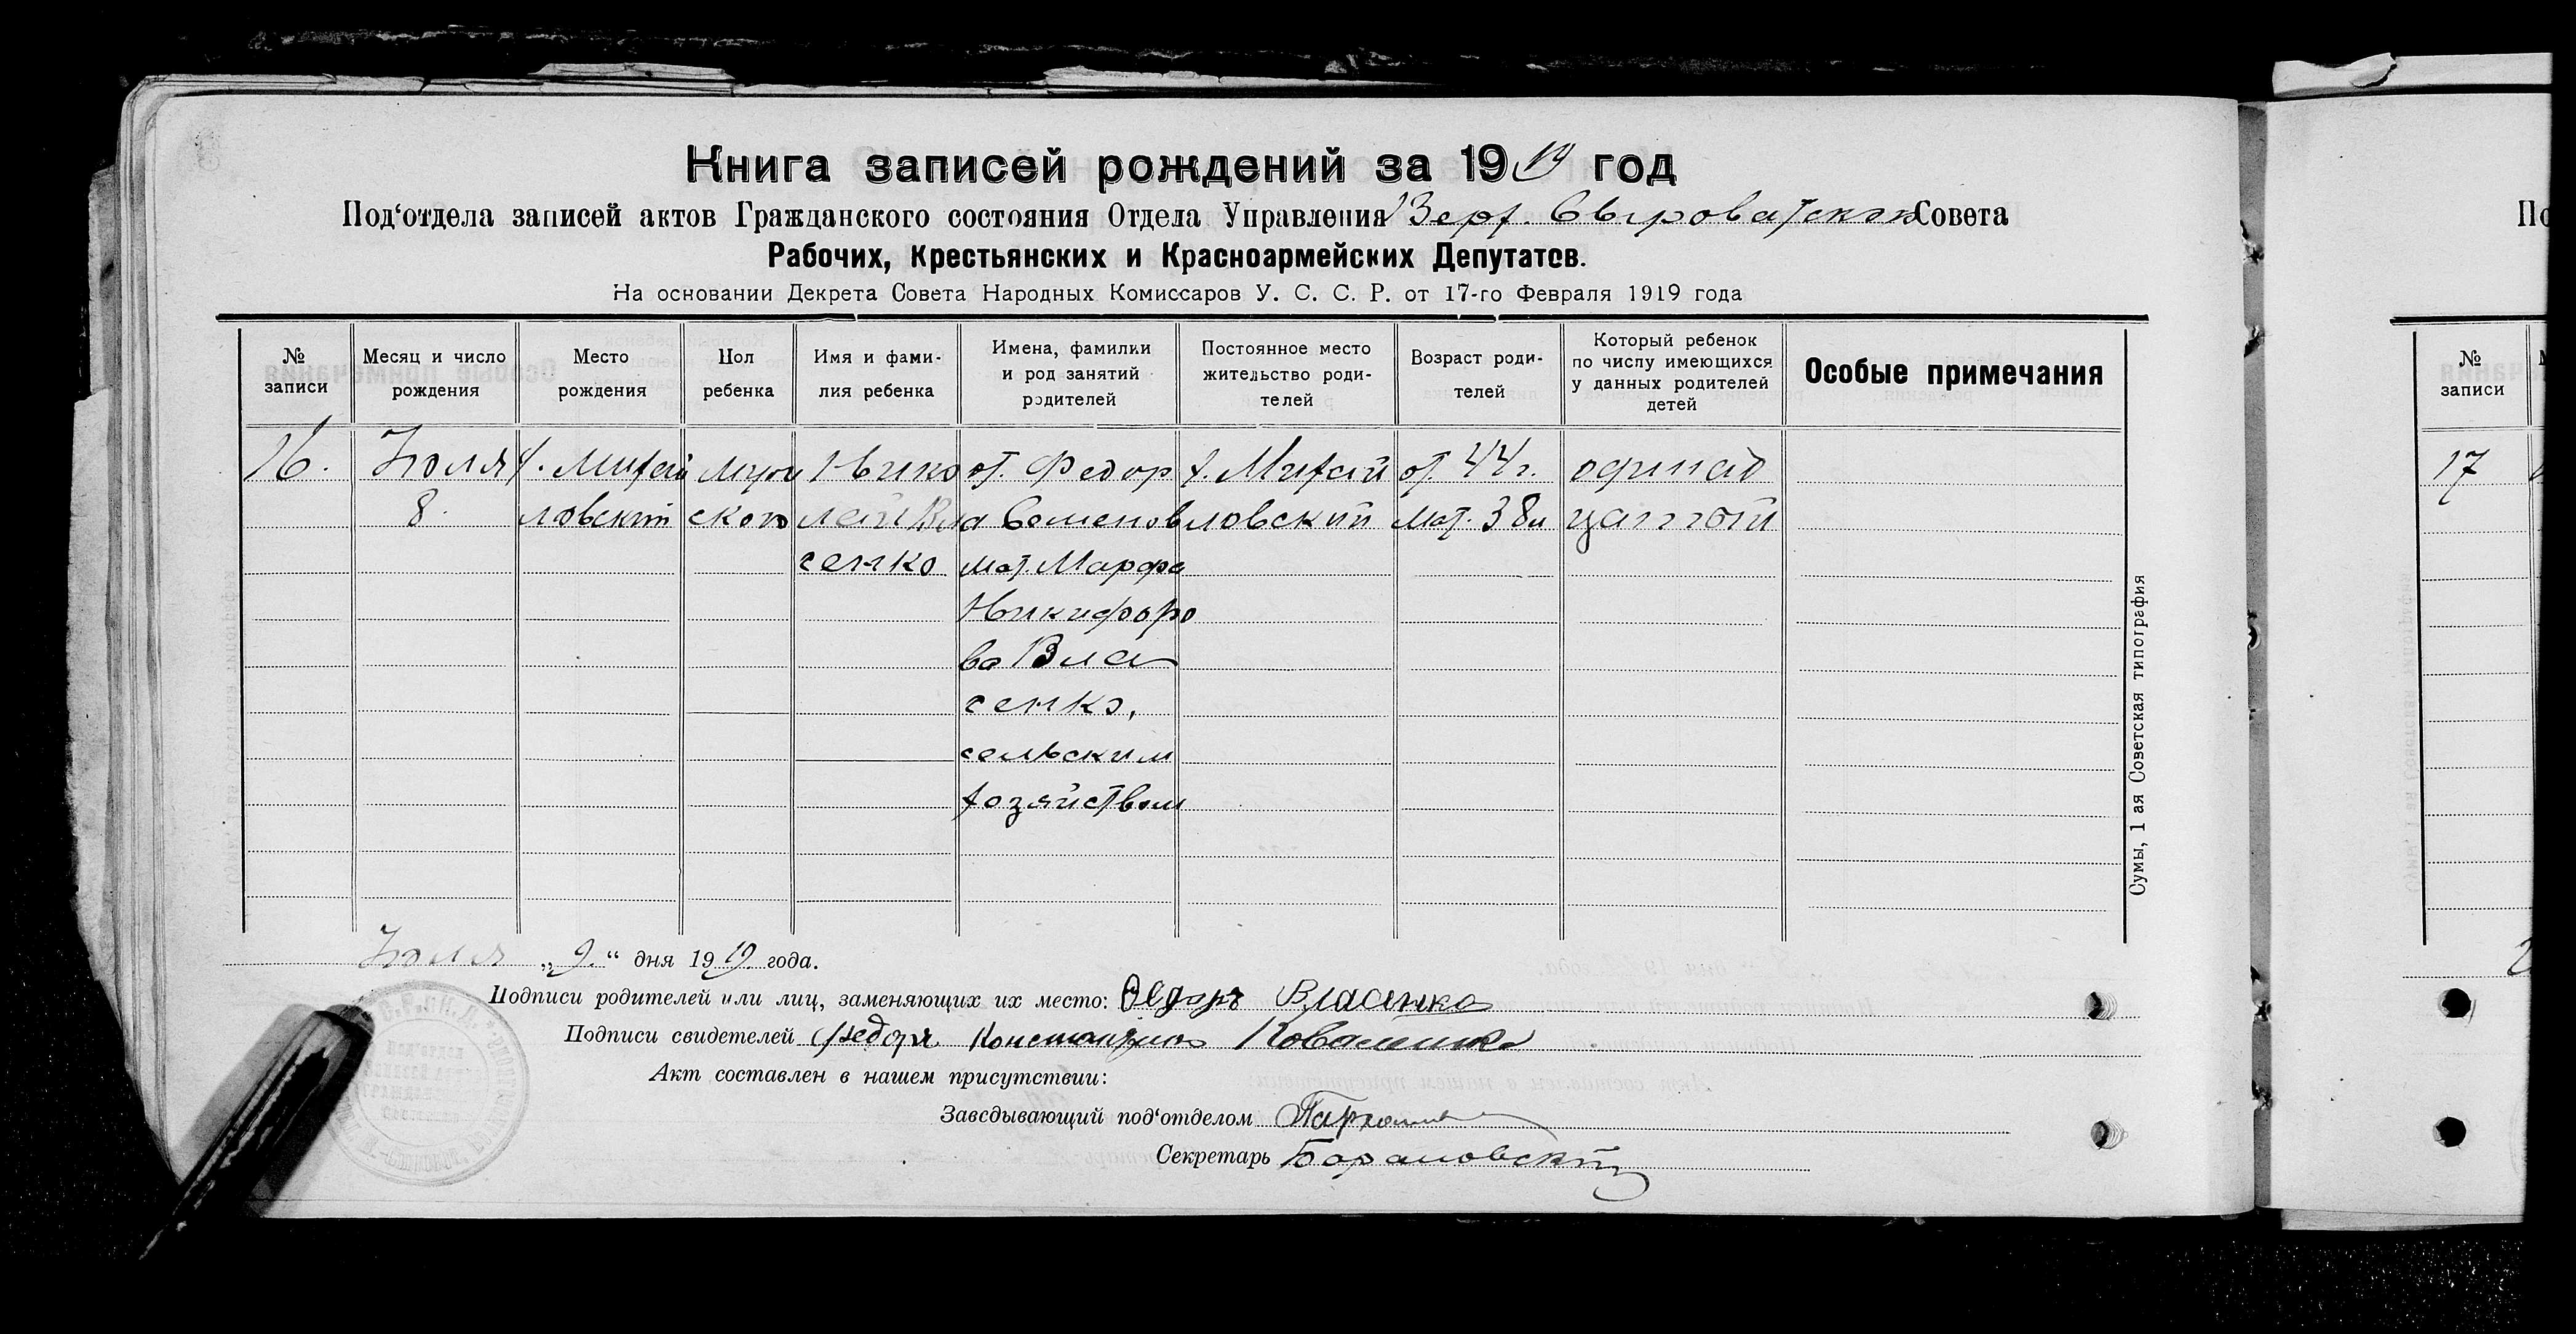 Книга записей рождений за 1919 год
Под‘отдела записей актов Гражданского состояния Отдела Управления Верх. Сыроватскаго Совета
Рабочих, Крестьянских и Красноармейских Депутатов.
На основании Декрета Совета Народных Комиссаров У. С. С. Р. от 17-го Февраля 1919 года
№ записи
Месяц и число рождения
Место рождения
Пол ребенка
Имя и фами-
лия ребенка
Имена, фамилии
и род занятий
родителей
Постоянное место
жительство роди-
телей
Возраст роди-
телей
Который ребенок
по числу имеющихся
у данных родителей
детей
Особые примечания
16.
Июля
8
х. Михай
ловский
муж
ского
Нико
лай Вла
сенко
от. Федор
Семенов
мат. Марфа
Никифоро
ва Вла
сенко,
сельским
хозяйством
х. Михай
ловский
от. 44 г.
мат. 38 л
одинад
цатый
Сумы, 1 ая Советская типография
Июля „9.“ дня 1919. года.
Подписи родителей или лиц, заменяющих их место: Ѳедоръ Власенко
Подписи свидетелей Федоръ Константинов Коваленко
Акт составлен в нашем присутствии:
Заведывающий под‘отделом
Секретарь Барановский
По
№
записи
17